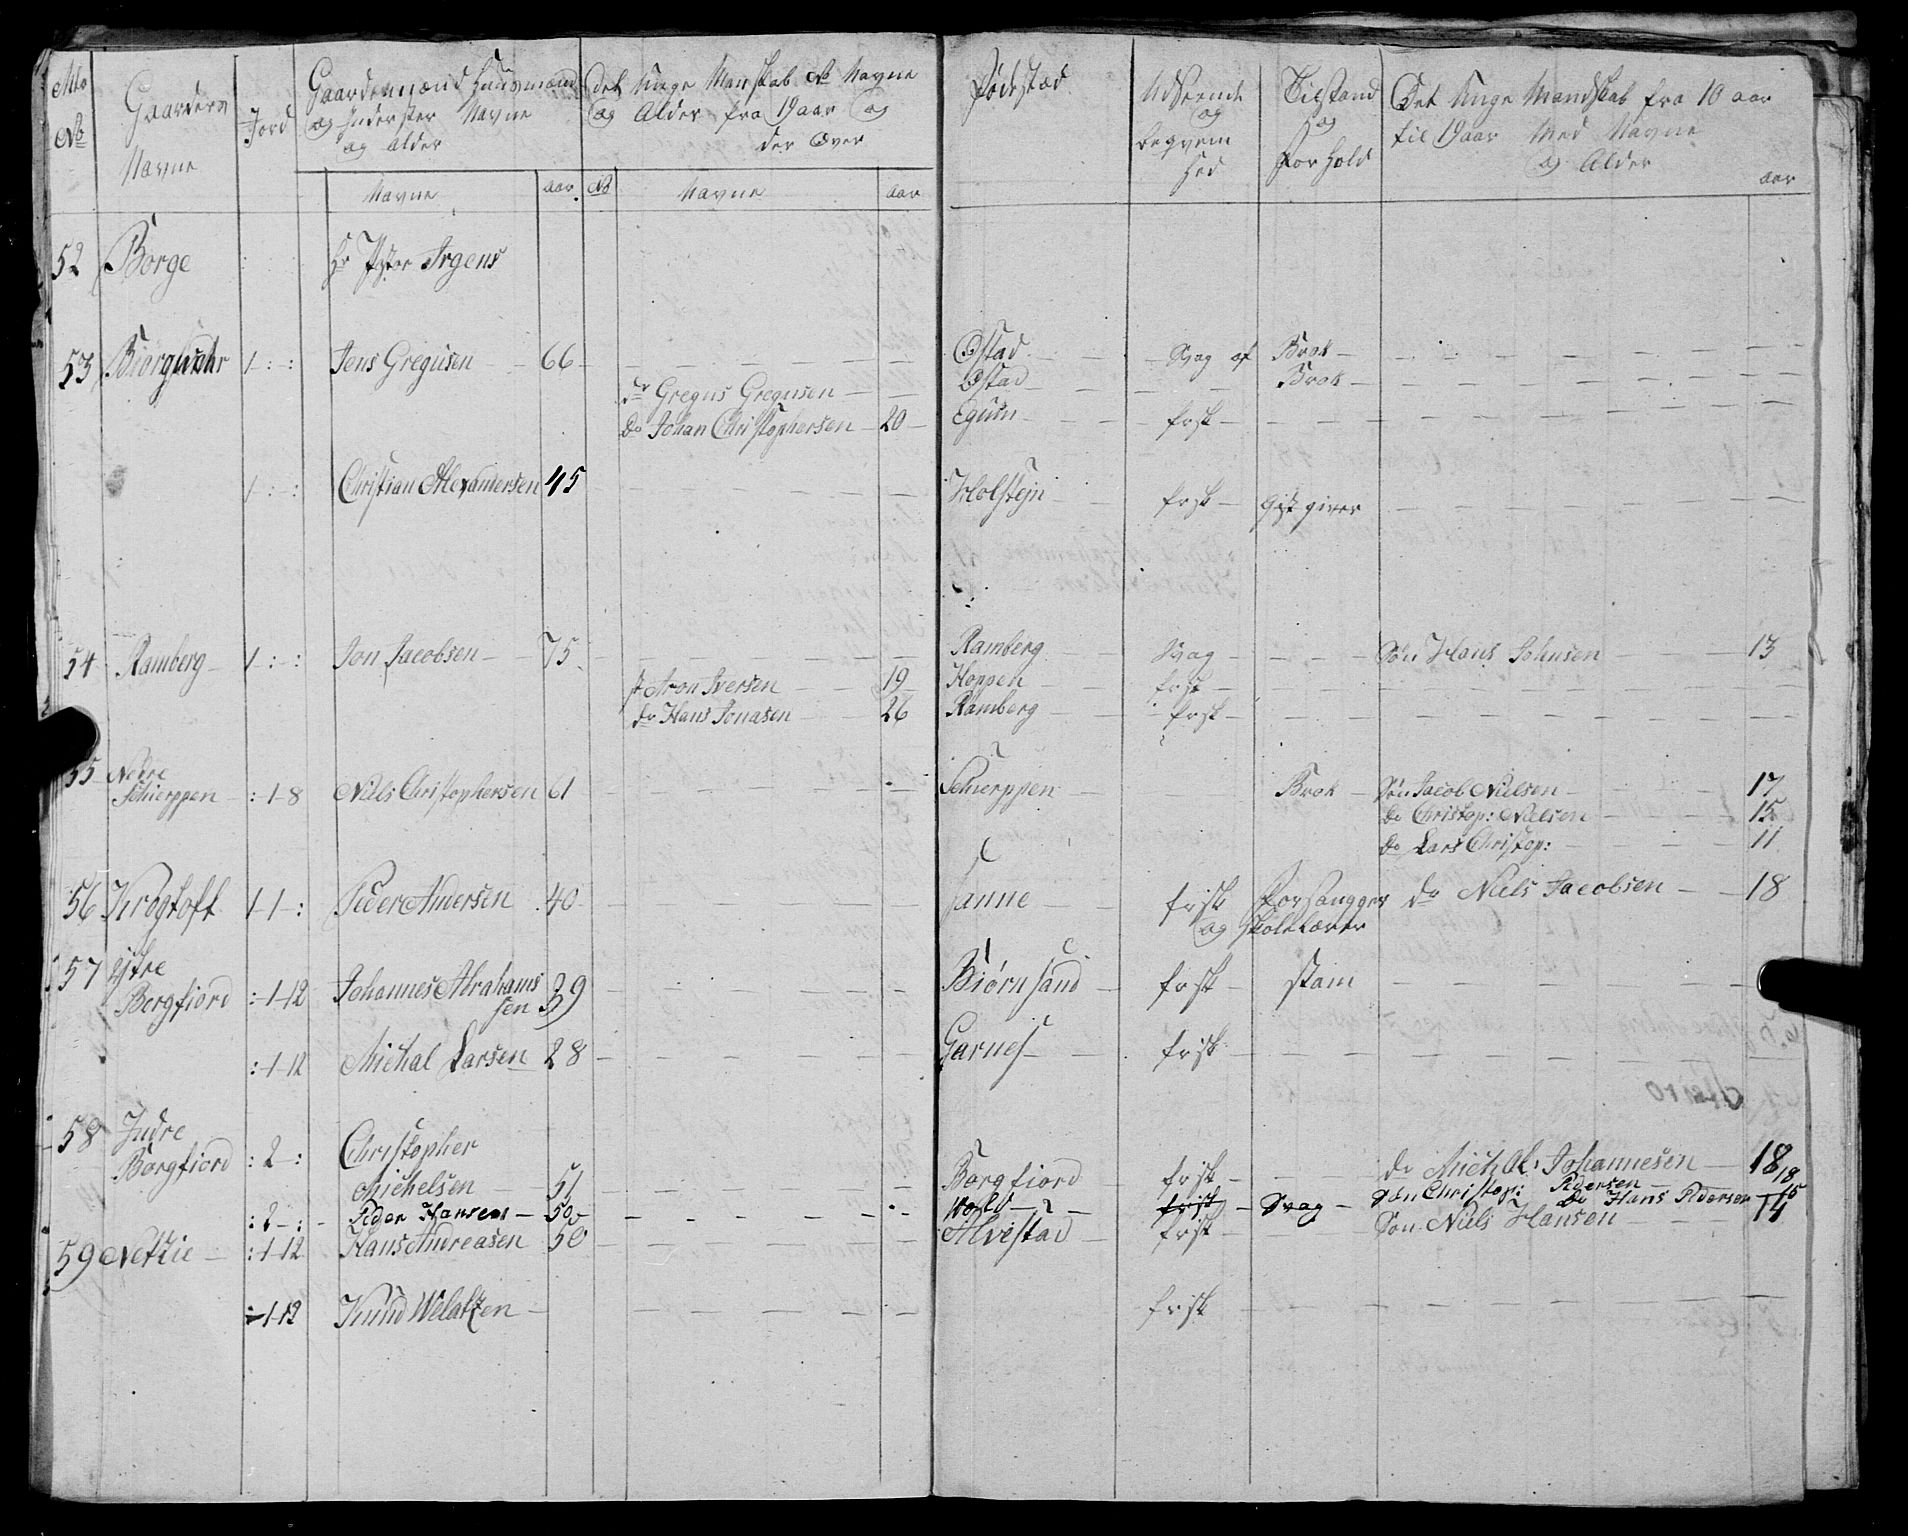 Mtr No
Gaardens Navne
Jord
Gaardemænd Huusmænd og Inderster Navne og Alder
Det Unge Manskab No Navne og Alder fra 19 aar og der Over
Fødestæd
Udseende og beqvem hed
Tilstand og Forhold
Det Unge Mandskab fra 10 aar til 19 aar Med Navne og Alder
Navne aar No Navne aar aar
52 Borge Hr Pastor Irgens
53 1 - : - : Jens Gregusen 66 Østad Svag af Brok
Gregus Gregusen Østad Brok
do Johan Christophersen 20 Egum frisk
1 - : - : Christian Alexandersen 45 Holstejn frisk Gjæstgiver
54 Ramberg 1 - : - : Jon Jacobsen 75 Ramberg Svag Søn Hans Johnsen 13
Aron Iversen 19 Hoppen frisk
do Hans Jonasen 26 Ramberg frisk
55 Nedre Schierppen : -1-8 Niels Christophersen 61 Schierppen Brok Søn Jacob Nielsen 17
do Christop: Nielsen 15
do Lars Christop: 11
56 Krogtoft 1-1-: Peder Andersen 40 Sanne frisk Forsangger og Skolelærer do Niels Jacobsen 18
57 Ytre Borgfiord :-1-12 Johannes Abrahams
sen 39 Biørnsand frisk stam
:-1-12 Michal Larsen 28 Garnes frisk
58 Indre Borgfiord : 2-: Christopher
Michelsen 51 Borgfiord frisk do Mich​al: Johannesen 18
: 2-: Peder Hansen 50 Wold frisk Svag Søn Christop: Pedersen 18
do Hans Pedersen 15
59 :-1-12 Hans Andreasen 50 Alvestad frisk Søn Niels Hansen 14
-1-12 Knud frisk